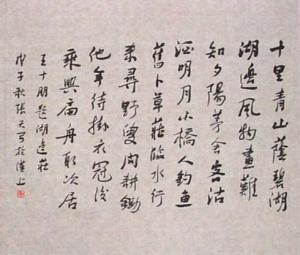 十里青山蔭碧湖
湖邊風物畫難
如夕陽茅舍客沽
酒明月小橋人釣魚
舊卜草莊臨水竹
來尋野叟問耕鋤
他年待掛衣冠後
乘興扁舟取次居
王十朋題湖邊莊
戊子秋張天弓於漢上